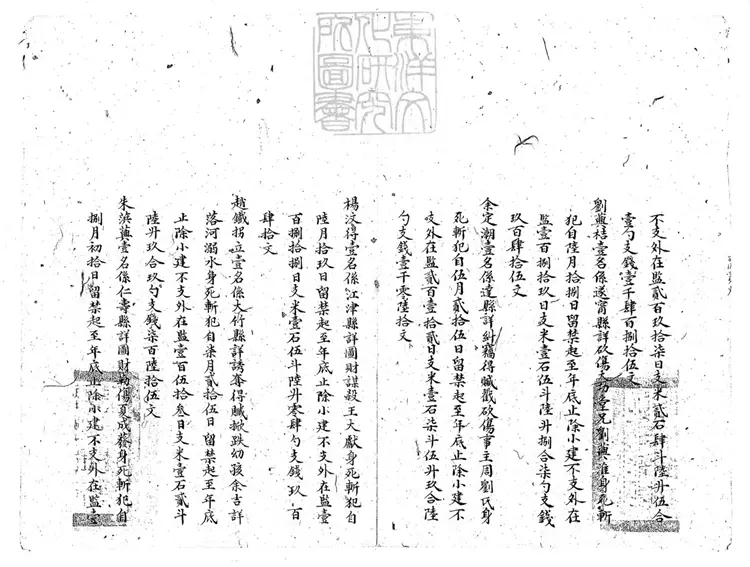 東洋文化研究所圖書
不支外在監貳百玖拾柒日支米貳石肆斗陸升伍合
壹勺支錢壹千肆百捌拾伍文
劉興桔壹名係遂寧縣詳砍傷大功堂兄劉興淮身死斬
犯自陸月拾捌日留禁起至年底止除小建不支外在
監壹百捌拾玖日支米壹石伍斗陸升捌合柒勺支錢
玖百肆拾伍文
余定潮壹名係達縣詳糾竊得贓戳砍傷事主周劉氏身
死斬犯自伍月貳拾伍日留禁起至年底止除小建不
支外在監貳百壹拾貳日支米壹石柒斗伍升玖合陸
勺支錢壹千零陸拾文
楊汶得壹名係江津縣詳圖財謀殺王大猷身死斬犯自
陸月拾玖日留禁起至年底止除小建不支外在監壹
百捌拾捌日支米壹石伍斗陸升零肆勺支錢玖百
肆拾文
趙鐵拐立壹名係大竹縣詳誘得贓掀跌幼孩余吉詳
落河溺水身死斬犯自柒月貳拾伍日留禁起至年底
止除小建不支外在監壹百伍拾叁日支米壹石貳斗
陸升玖合玖勺支錢柒百陸拾伍文
朱興壹名係仁壽縣詳圖財勒傷夏成發身死斬犯自
捌月初拾日留禁起至年底止除小建不支外在監壹